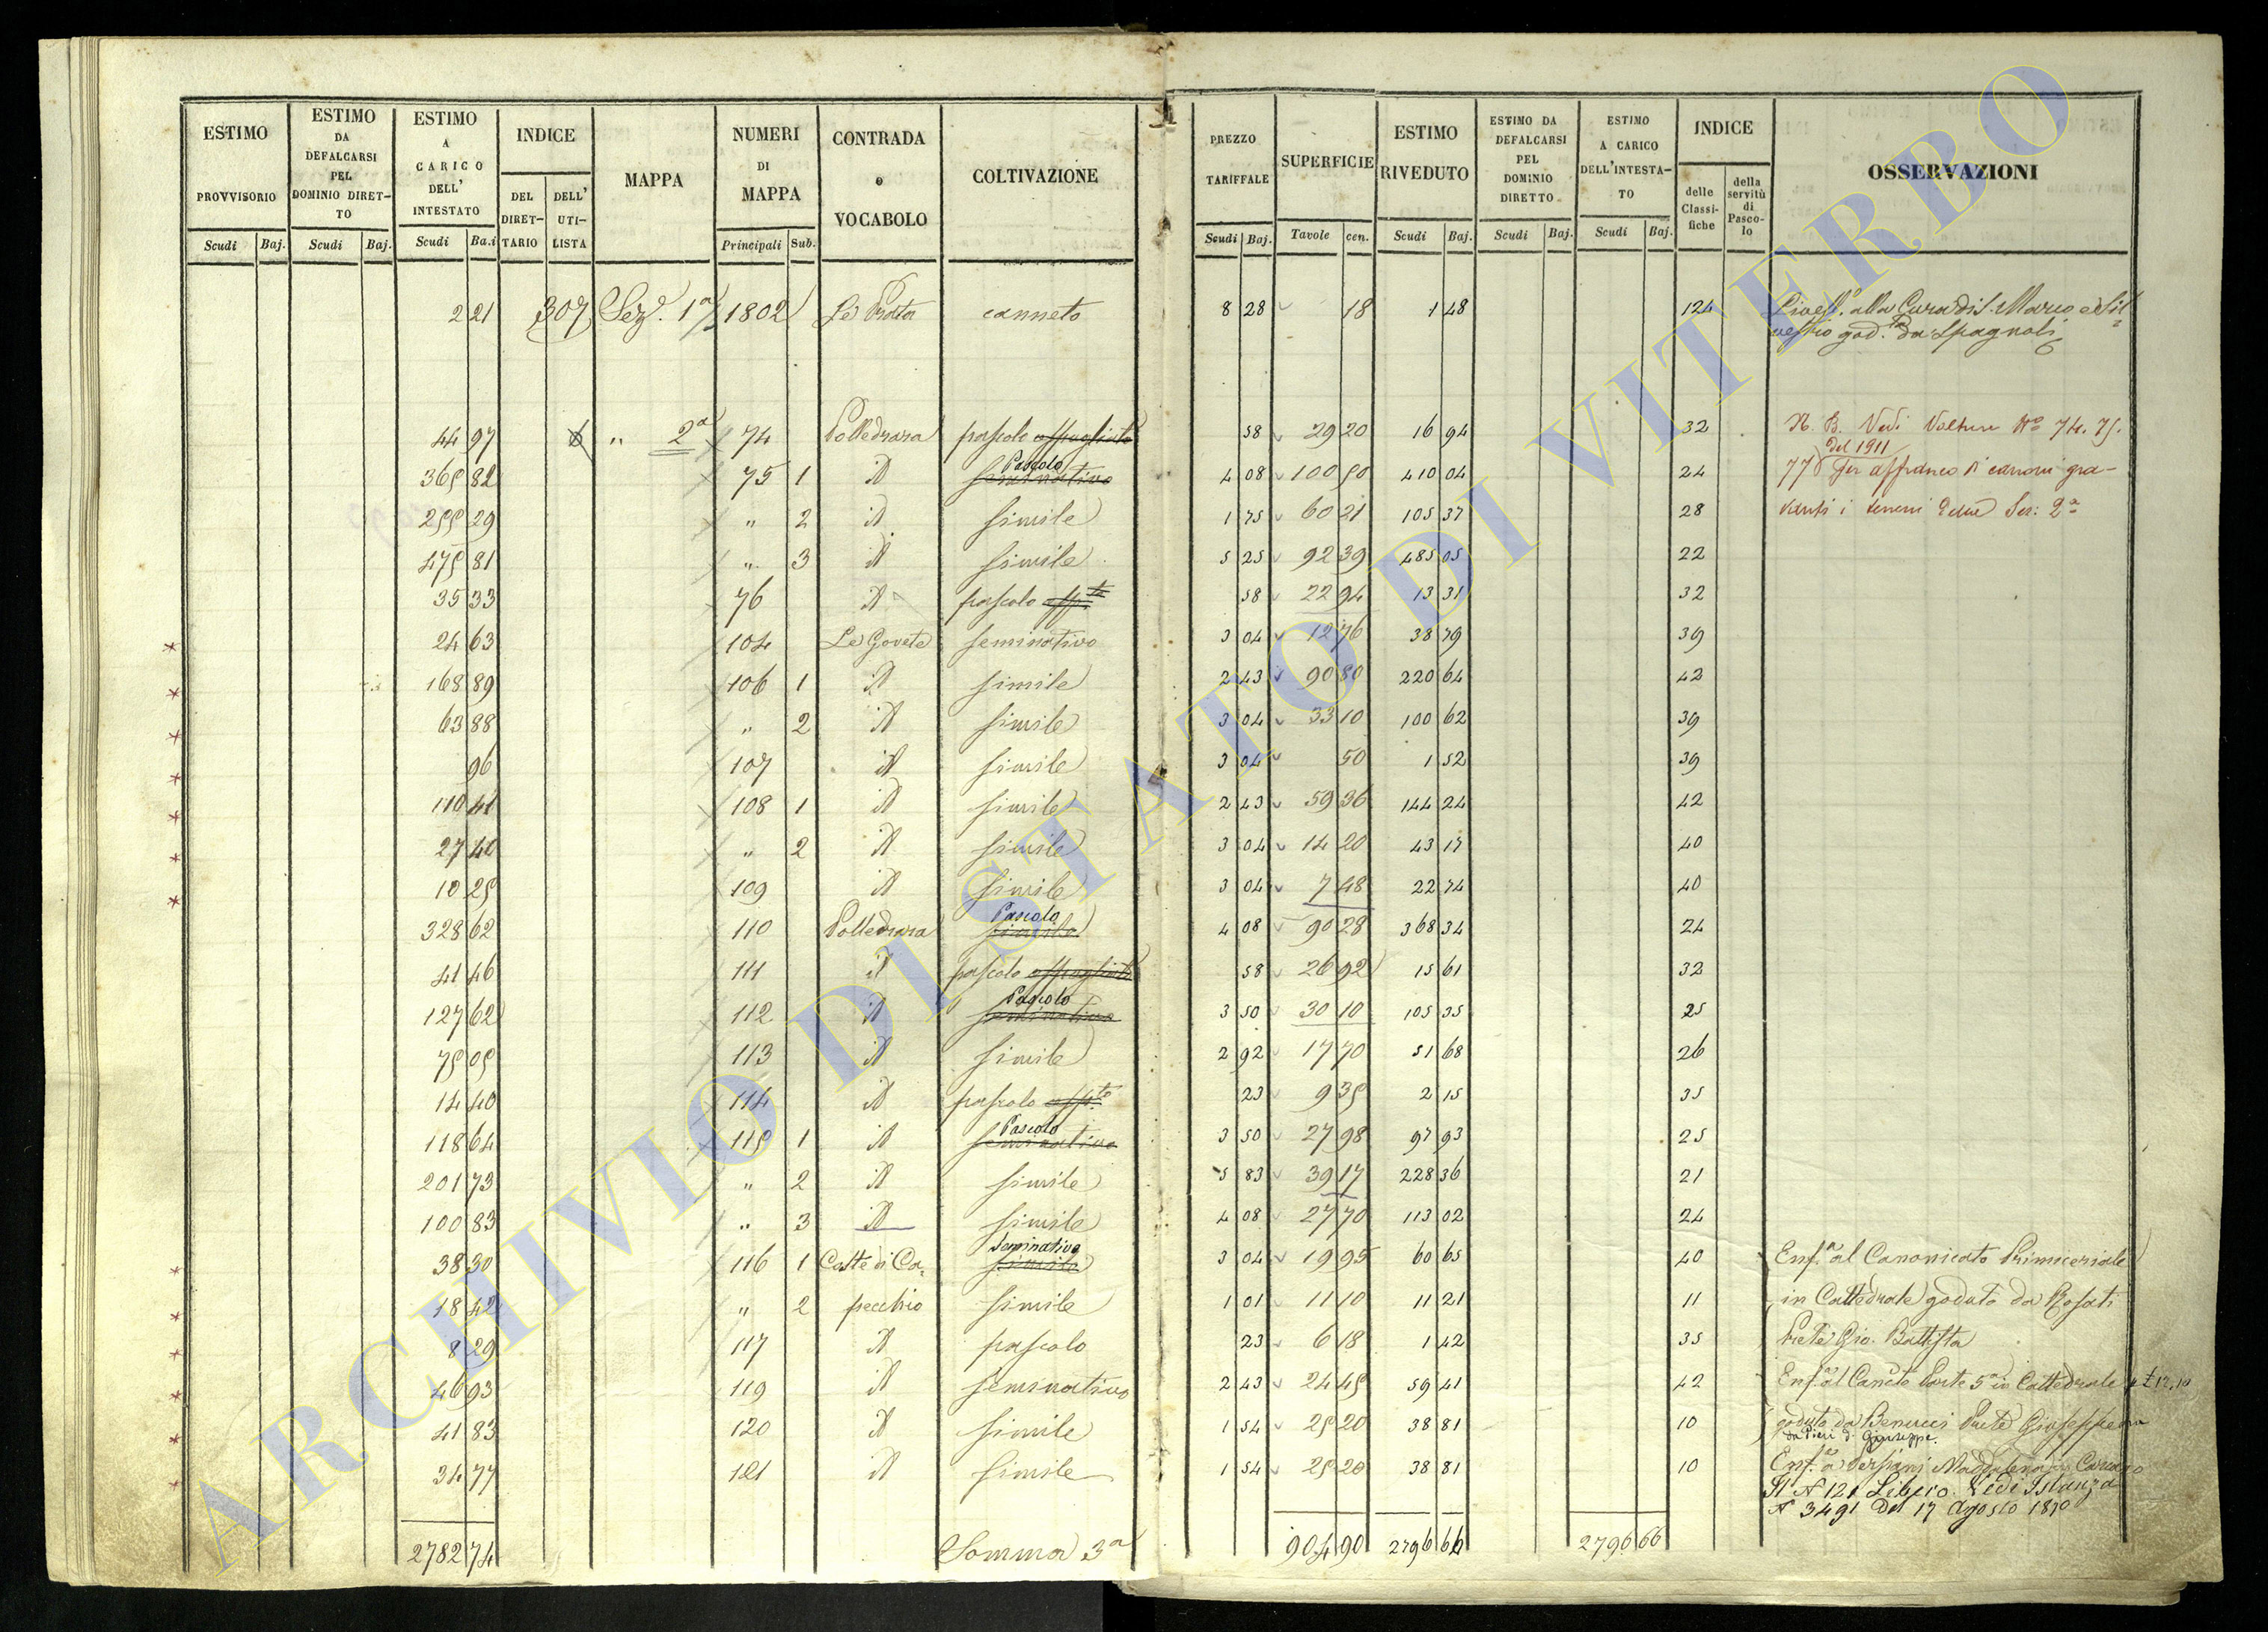 ESTIMO PROVVISORIO Scudi Baj. | ESTIMO DA DEFALCARSI PEL DOMINIO DIRET-TO Scudi Baj. | ESTIMO A CARICO DELL' INTESTATO Scudi Ba.i | INDICE DEL DIRET-TARIO DELL' UTI-LISTA | MAPPA | NUMERI DI MAPPA Principali Sub. | CONTRADA o VOCABOLO | COLTIVAZIONE | PREZZO TARIFFALE Scudi Baj. | SUPERFICIE Tavole cen. | ESTIMO RIVEDUTO Scudi Baj. | ESTIMO DA DEFALCARSI PEL DOMINIO DIRETTO Scudi Baj. | ESTIMO A CARICO DELL'INTESTA-TO Scudi Baj. | INDICE delle Classi-fiche della servitù di Pasco-lo | OSSERVAZIONI
2 21 307 Sez. 1a 1802 Le Prata canneto 8 28 18 1 48 124 Livell. alla Cura di S. Marco e Sil=
vestro god. da Spagnoli
44 97 " 2a 74 Polledrara pascolo appogliato 58 29 20 16 94 32 N. B. Vedi Volture No 74. 75.
del 1911
365 82 75 1 id Pascolo seminativo 4 08 100 50 410 04 24 77 per affranco di canoni gra-
255 29 " 2 id simile 1 75 60 21 105 37 28 vanti i terreni della Sez: 2a
475 81 " 3 id simile 5 25 92 39 485 05 22
35 33 76 id pascolo app.to 58 22 94 13 31 32
* 24 63 104 Le Govete seminativo 3 04 12 76 38 79 39
* 168 89 106 1 id simile 2 43 90 80 220 64 42
* 63 88 " 2 id simile 3 04 33 10 100 62 39
* 96 107 id simile 3 04 50 1 52 39
* 110 41 108 1 id simile 2 43 59 36 144 24 42
* 27 40 " 2 id simile 3 04 14 20 43 17 40
* 10 25 109 id simile 3 04 7 48 22 74 40
328 62 110 Polledrara Pascolo simile 4 08 90 28 368 34 24
41 46 111 id pascolo appogliato 58 26 92 15 61 32
127 62 112 id Pascolo seminativo 3 50 30 10 105 35 25
75 05 113 id simile 2 92 17 70 51 68 26
14 40 114 id pascolo app.to 23 9 35 2 15 35
118 64 115 1 id Pascolo seminativo 3 50 27 98 97 93 25
201 73 " 2 id simile 5 83 39 17 228 36 21
100 83 " 3 id simile 4 08 27 70 113 02 24
* 38 30 116 1 Catte di Ca= Seminativo simile 3 04 19 95 60 65 40 Enf.a al Canonicato Primiceriale
* 18 42 " 2 pecchio simile 1 01 11 10 11 21 11 in Cattedrale goduto da Rosati
* 8 29 117 id pascolo 23 6 18 1 42 35 Prete Gio. Battista
* 46 93 119 id seminativo 2 43 24 45 59 41 42 Enf.a al Can.to Parte 5a in Cattedrale
* 41 83 120 id simile 1 54 25 20 38 81 10 goduto da Benucci Prete Giuseppe
da Pieri D. Giuseppe.
* 34 77 121 id simile 1 54 25 20 38 81 10 Enf.a a Persiani Maddalena
Il N 121 Libero. Vedi Istanza
N 3491 del 17 Agosto 1870
2782 74 Somma 3a 904 90 2796 66 2796 66
ARCHIVIO DI STATO DI VITERBO